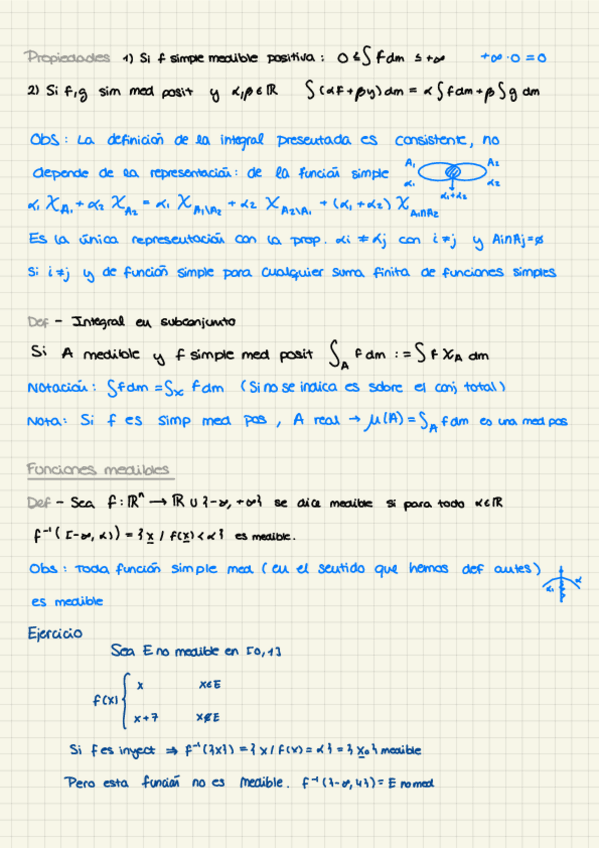 Propiedades 1) Si f simple medible positiva : 0 ≤ ∫ f dm ≤ +∞ +∞ · 0 = 0
2) Si f, g sim med posit y α, β ∈ ℝ ∫ (αf + βg) dm = α ∫ f dm + β ∫ g dm
Obs : La definición de la integral presentada es consistente, no
depende de la representación: de la función simple A₁ A₂ α₁ α₂ α₁+α₂
α₁ χ_A₁ + α₂ χ_A₂ = α₁ χ_A₁\A₂ + α₂ χ_A₂\A₁ + (α₁ + α₂) χ_A₁∩A₂
Es la única representación con la prop. αi ≠ αj con i ≠ j y Ai∩Aj = ø
Si i ≠ j y de función simple para cualquier suma finita de funciones simples
Def - Integral en subconjunto
Si A medible y f simple med posit ∫_A f dm := ∫ f χ_A dm
Notación : ∫ f dm = ∫_X f dm (Si no se indica es sobre el conj total)
Nota: Si f es simp med pos , A real → μ(A) = ∫_A f dm es una med pos
Funciones medibles
Def - Sea f : ℝⁿ → ℝ ∪ {-∞, +∞} se dice medible si para todo α ∈ ℝ
f⁻¹( [-∞, α)) = { x / f(x) < α } es medible.
Obs : Toda función simple med ( en el sentido que hemos def antes)
es medible
Ejercicio
Sea E no medible en [0,1]
f(x) { x x∈E
x+7 x∉E
Si f es inyect ⇒ f⁻¹({x}) = { x / f(x) = α } = { x₀ } medible
Pero esta función no es medible. f⁻¹({-∞, 4}) = E no med